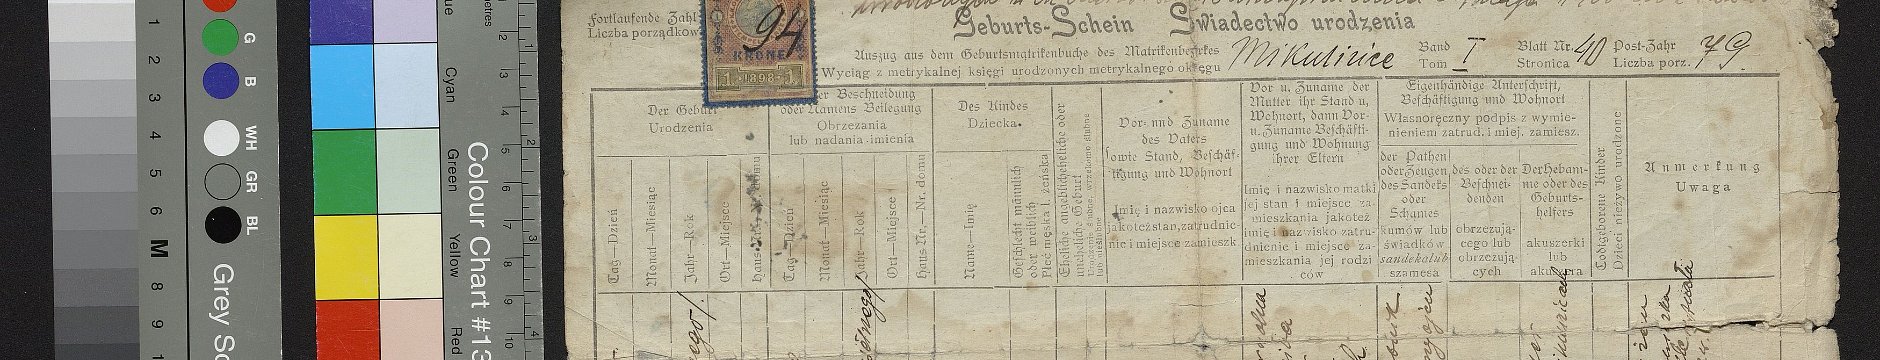 Fortlaufende Zahl
Liczba porządkow
94
KRONE
1 1898 1
Geburts-Schein Świadectwo urodzenia
Auszug aus dem Geburtsmatrikenbuche des Matrikenbezirkes
Wyciąg z metrykalnej księgi urodzonych metrykalnego okręgu
Mikulińce
Band
Tom I
Blatt Nr.
Stronica 40
Post-Zahr
Liczba porz. 79.
Der Geburt
Urodzenia
der Beschneidung
oder Namens Beilegung
Obrzezania
lub nadania imienia
Des Kindes
Dziecka.
Tag—Dzień
Monat—Miesiąc
Jahr—Rok
Ort—Miejsce
Tag—Dzień
Monat—Miesiąc
Jahr—Rok
Ort—Miejsce
Haus-Nr.—Nr. domu
Name—Imię
Geschlecht männlich
oder weiblich
Płeć męska l. żeńska
Eheliche angeblicheheliche oder
uneheliche Geburt
Vor- und Zuname
des Vaters
sowie Stand, Beschäf-
tigung und Wohnort
Imię i nazwisko ojca
jakoteż stan, zatrudnie-
nie i miejsce zamieszk
Vor u. Zuname der
Mutter ihr Stand u.
Wohnort, dann Vor-
u. Zuname Beschäfti-
gung und Wohnung
ihrer Eltern
Imię i nazwisko matki
jej stan i miejsce za-
mieszkania jakoteż
imię i nazwisko zatru-
dnienie i miejsce za-
mieszkania jej rodzi
ców
Eigenhändige Unterschrift,
Beschäftigung und Wohnort
Własnoręczny podpis z wymie-
nieniem zatrud. i miej. zamiesz.
der Pathen
oder Zeugen
des Sandeks
oder
Schames
kumów lub
świadków
sandeka lub
szamesa
des oder der
Beschnei-
denden
obrzezują-
cego lub
obrzezują-
cych
Der Hebam-
me oder des
Geburts-
helfers
akuszerki
lub
akuszera
Todtgeborene Kinder
Dzieci nieżywo urodzone
Anmerkung
Uwaga
1
2
3
4
5
6
M
8
9
G
B
WH
GR
BL
Grey Sc
Cyan
Green
Yellow
Red
Colour Chart #13
metres
2
3
4
5
6
7
8
9
10
1
2
3
4